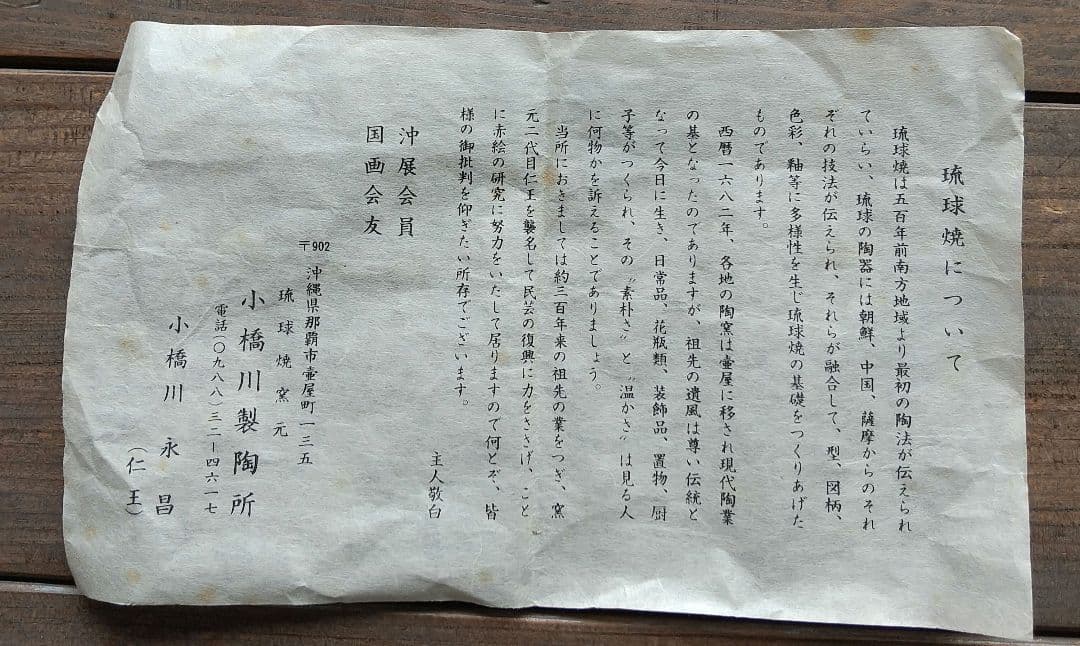 琉球焼について
琉球焼は五百年前南方地域より最初の陶法が伝えられ
ていらい、琉球の陶器には朝鮮、中国、薩摩からのそれ
ぞれの技法が伝えられ、それらが融合して、型、図柄、
色彩、釉等に多様性を生じ琉球焼の基礎をつくりあげた
ものであります。
西暦一六八二年、各地の陶窯は壷屋に移され現代陶業
の基となったのでありますが、祖先の遺風は尊い伝統と
なって今日に生き、日常品、花瓶類、装飾品、置物、厨
子等がつくられ、その〝素朴さ〟と〝温かさ〟は見る人
に何物かを訴えることでありましょう。
当所におきましては約三百年来の祖先の業をつぎ、窯
元二代目仁王を襲名して民芸の復興に力をささげ、こと
に赤絵の研究に努力をいたして居りますので何とぞ、皆
様の御批判を仰ぎたい所存でございます。
主人敬白
沖展会員
国画会友
〒902 沖縄県那覇市壷屋町一三五
琉球焼窯元
小橋川製陶所
電話(〇九八八)三二-四六一七
小橋川 永昌
(仁王)